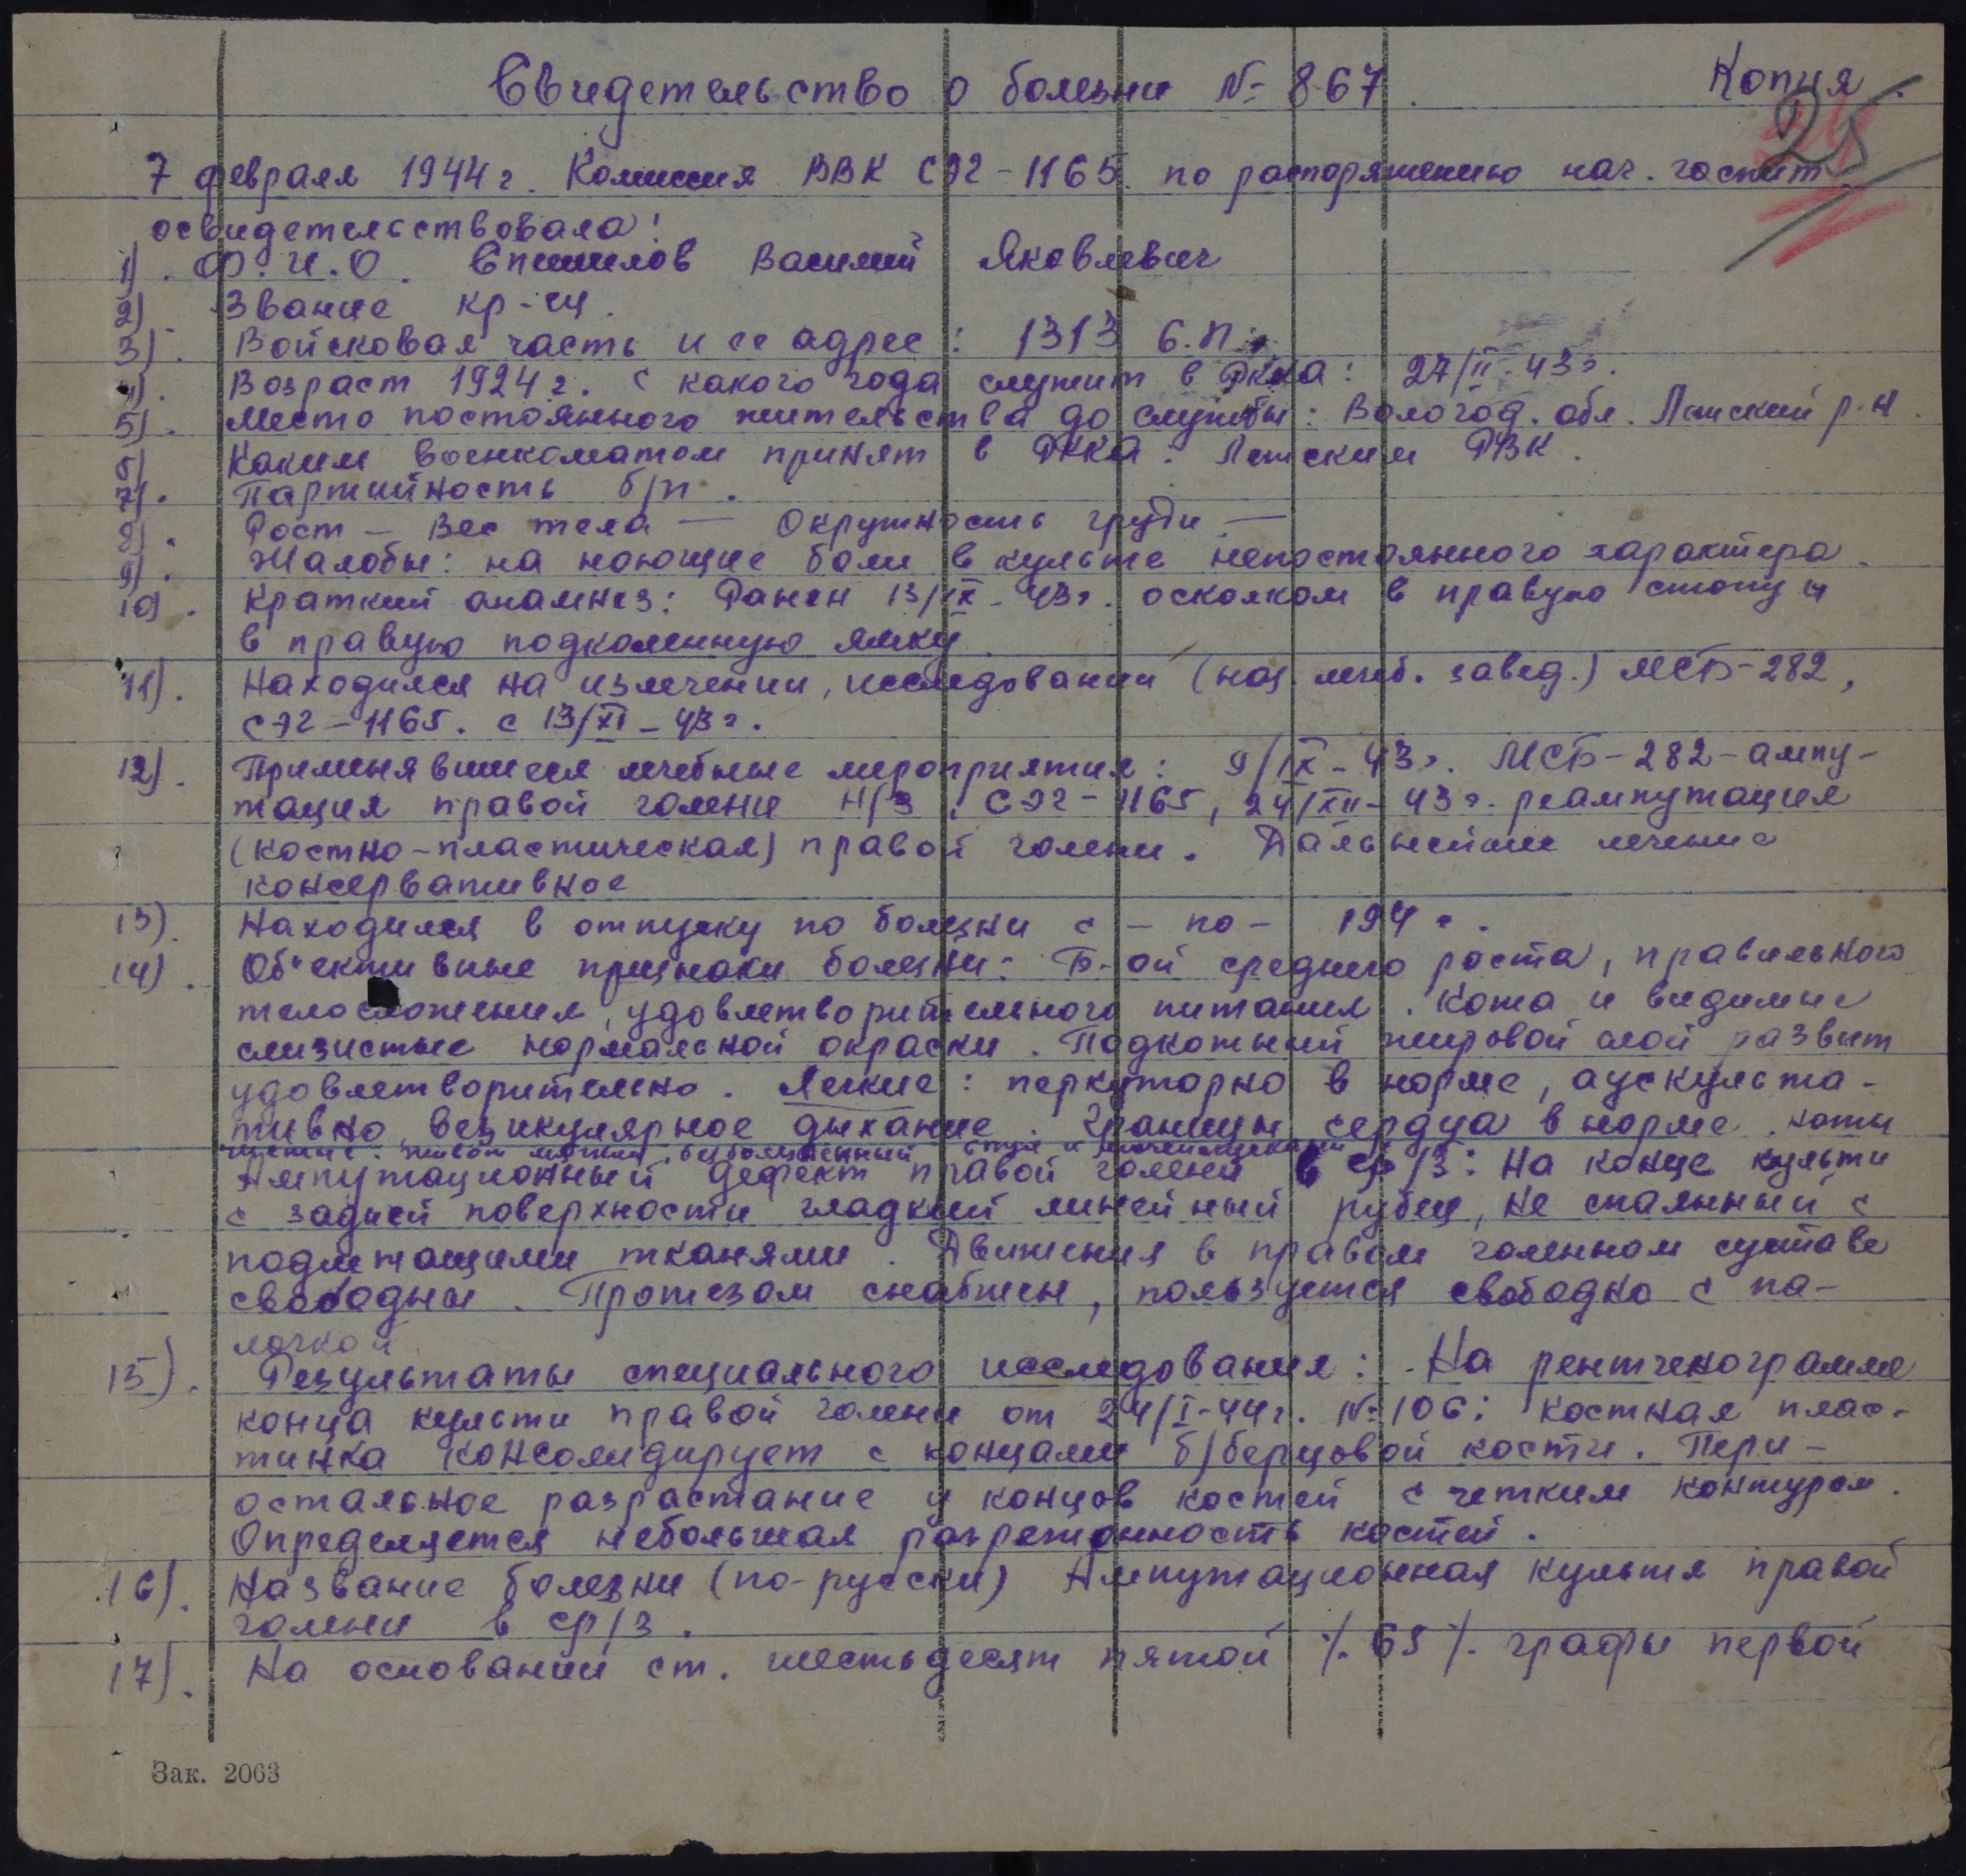 Свидетельство о болезни № 867.
Копия.
25
7 февраля 1944 г. Комиссия ВВК СЭГ-1165. по распоряжению нач. госпит.
освидетельствовала:
1). Ф.И.О. Василий Яковлевич
2) Звание кр-ец.
3). Войсковая часть и ее адрес: 1313 С.П.
4). Возраст 1924 г. С какого года служит в РККА: 27/II-43г.
5). Место постоянного жительства до службы: Вологод. обл. Лежский р-н.
6) Каким военкоматом принят в РККА: Лежским РВК.
7). Партийность б/п.
8). Рост — Вес тела — Окружность груди —
9). Жалобы: на ноющие боли в культе непостоянного характера.
10). Краткий анамнез: Ранен 13/IX-43г. осколком в правую стопу и
в правую подколенную ямку.
11). Находился на излечении, исследовании (наз. лечеб. завед.) МСБ-282,
СЭГ-1165. с 13/XI-43г.
12). Применявшиеся лечебные мероприятия: 9/IX-43г. МСБ-282-ампу-
тация правой голени н/з. СЭГ-1165, 24/XII-43г. реампутация
(костно-пластическая) правой голени. Дальнейшее лечение
консервативное
13). Находился в отпуску по болезни с - по - 194 г.
14). Об'ективные признаки болезни: Б-ой среднего роста, правильного
телосложения, удовлетворительного питания. Кожа и видимые
слизистые нормальной окраски. Подкожный жировой слой развит
удовлетворительно. Легкие: перкуторно в норме, аускульта-
тивно везикулярное дыхание. Границы сердца в норме. тоны
чистые. живот мягкий, безболезненный стул и мочеиспускание
Ампутационный дефект правой голени в ср/з: На конце культи
с задней поверхности гладкий линейный рубец, не спаянный с
подлежащими тканями. Движения в правом коленном суставе
свободны. Протезом снабжен, пользуется свободно с па-
лочкой.
15). Результаты специального исследования: На рентгенограмме
конца культи правой голени от 24/I-44г. № 106: костная плас-
тинка консолидирует с концами б/берцовой кости. Пери-
остальное разрастание у концов костей с четким контуром.
Определяется небольшая разреженность костей.
16). Название болезни (по-русски) Ампутационная культя правой
голени в ср/з.
17). На основании ст. шестьдесят пятой /.65/. графы первой
Зак. 2063